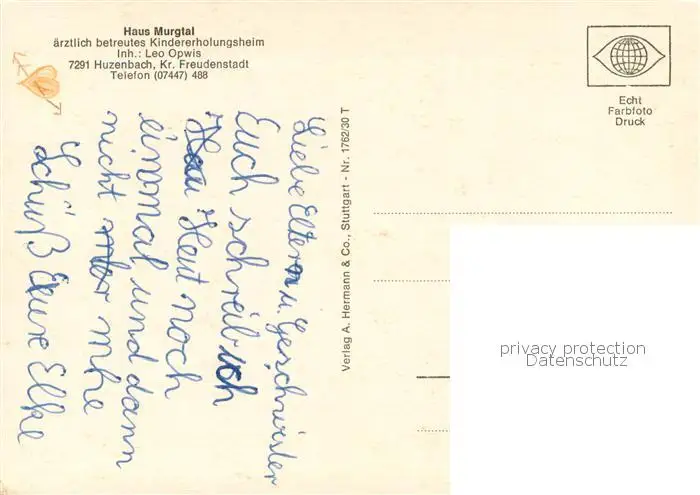 Haus Murgtal
ärztlich betreutes Kindererholungsheim
Inh.: Leo Opwis
7291 Huzenbach, Kr. Freudenstadt
Telefon (07447) 488
Echt
Farbfoto
Druck
Liebe Eltern u. Geschwister
Euch schreib ich
Heut noch
einmal und dann
nicht mhe
Schüß Eure Elke
Verlag A. Hermann & Co., Stuttgart - Nr. 1762/30 T
privacy protection
Datenschutz